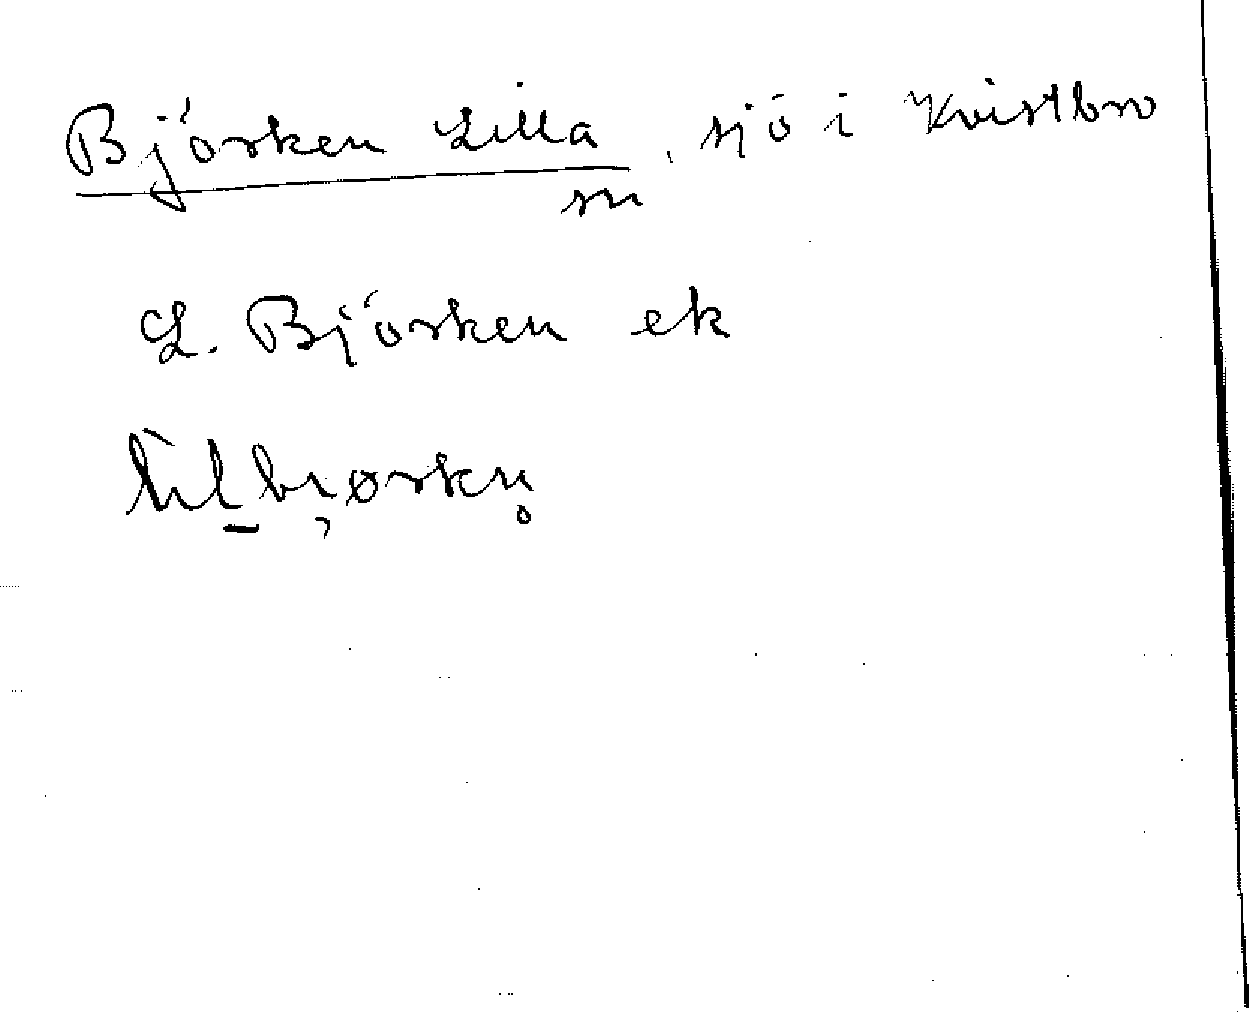 Björken Lilla, sjö i Kvistbro
sn
L. Björken ek
lilbjørkn̥